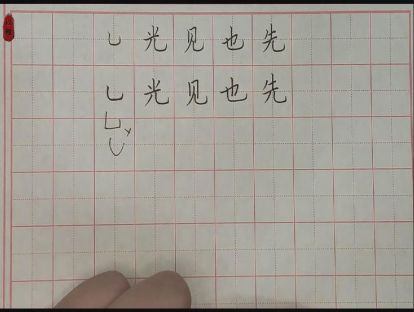 乚 光 见 也 先
乚 光 见 也 先